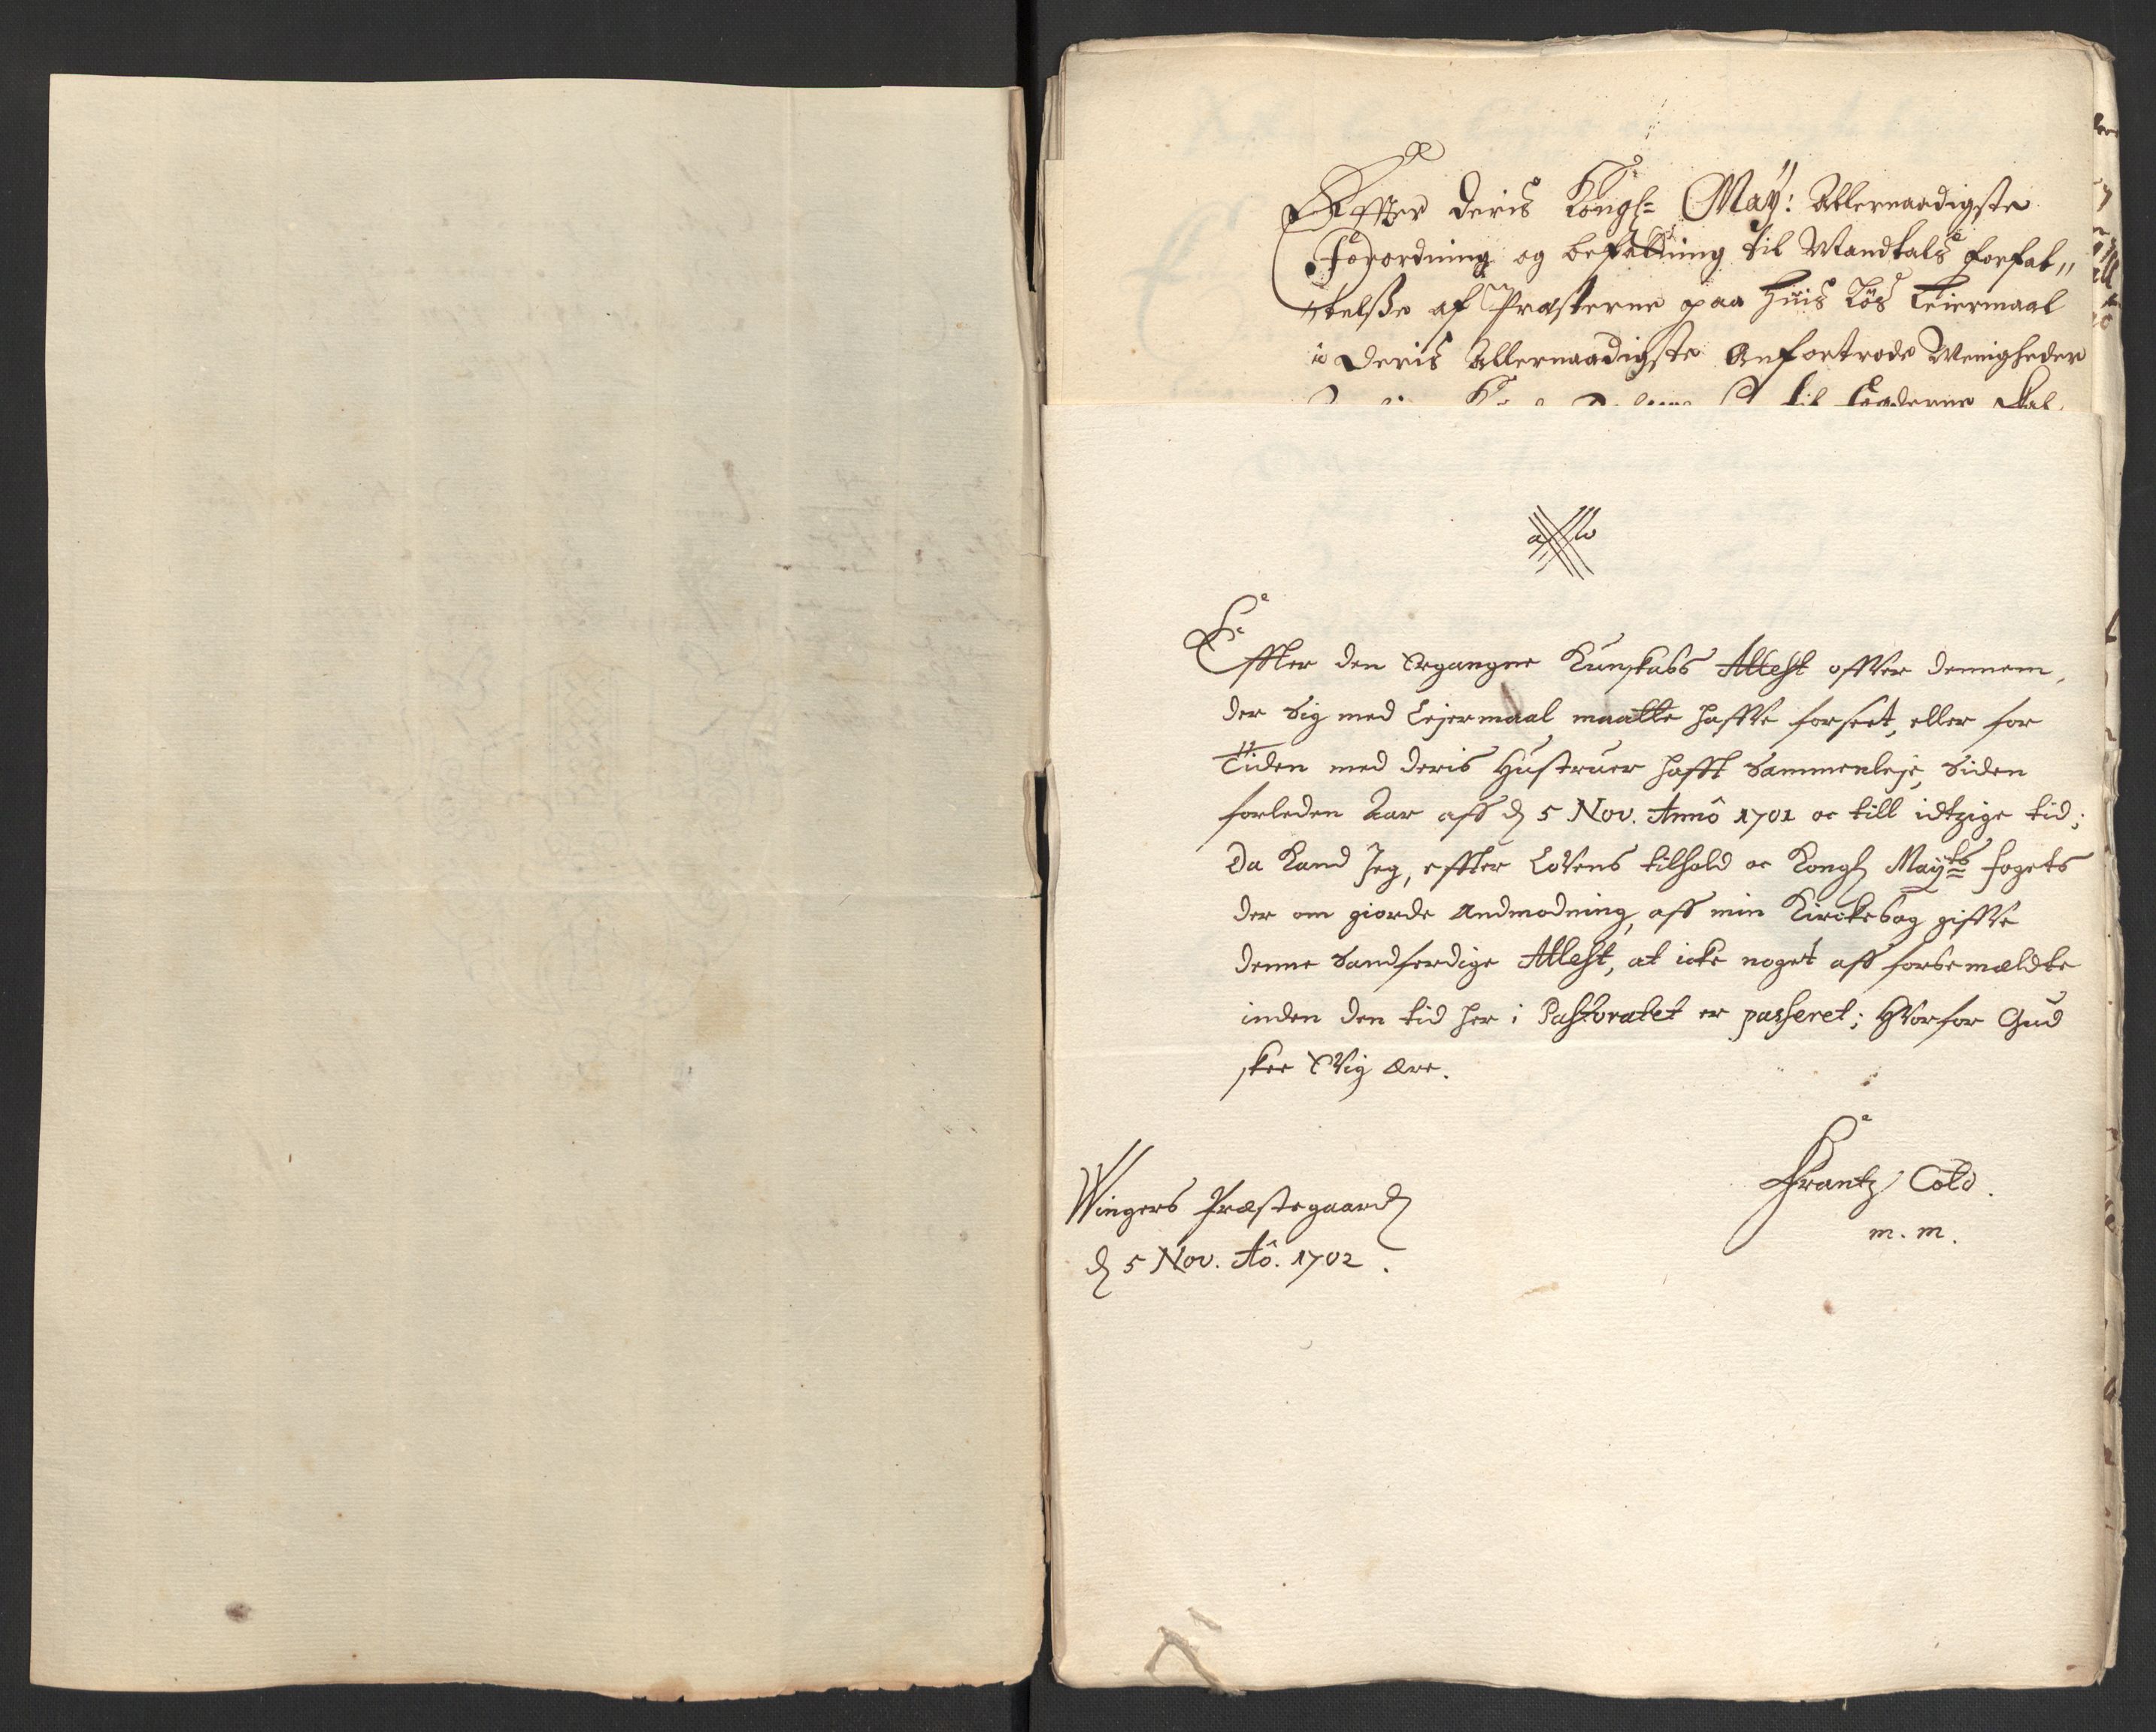 Effter deris Kongl= May: Allernaadigste
Forordning og befalning til Mandtals forfat„
„telsße af Præsterne paa Huis Løs Leiermaal
i deris Allernaadigste Anfortrode Menigheder
til
Effter den Ergangne Kunskabs Attest offver dennem,
der Sig med Lejermaal maatte haffve forseet, eller for
Tiiden med deris Hustruer hafft Sammenleje, Siden
forleden Aar aff d 5 Nov. Annô 1701 oc till idtzige tid;
Da Kand Jeg, effter Lovens tilhold oc Kongl Mayts fogets
der om giorde Andmodning, aff min Kirckebog giffve
denne Sandferdige Attest, at icke noget aff forbemældte
inden den tid her i Pastoratet er passeret; Hvorfor Gud
skee Evig ære.
Wingers Præstegaard
d 5 Nov. Aô. 1702.
Frantz Cold.
m. m.